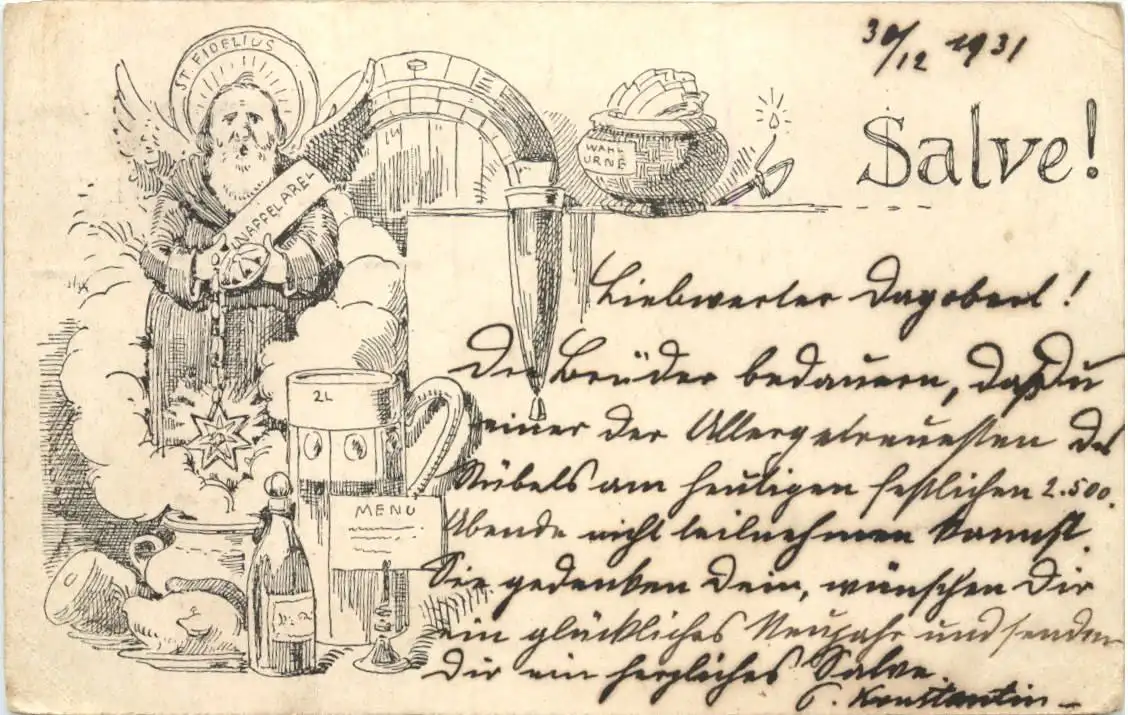 30/12 1931
ST. FIDELIUS
WAHL
URNE
Salve!
Liebwerter Dagobert!
Die Brüder bedauern, daß Du
einer der Allergetreuesten des
Stübels am heutigen festlichen 2.500.
Abende nicht teilnehmen kannst.
Sie gedenken Dein, wünschen Dir
ein glückliches Neujahr und senden
Dir ein herzliches Salve.
Konstantin
2L
MENU